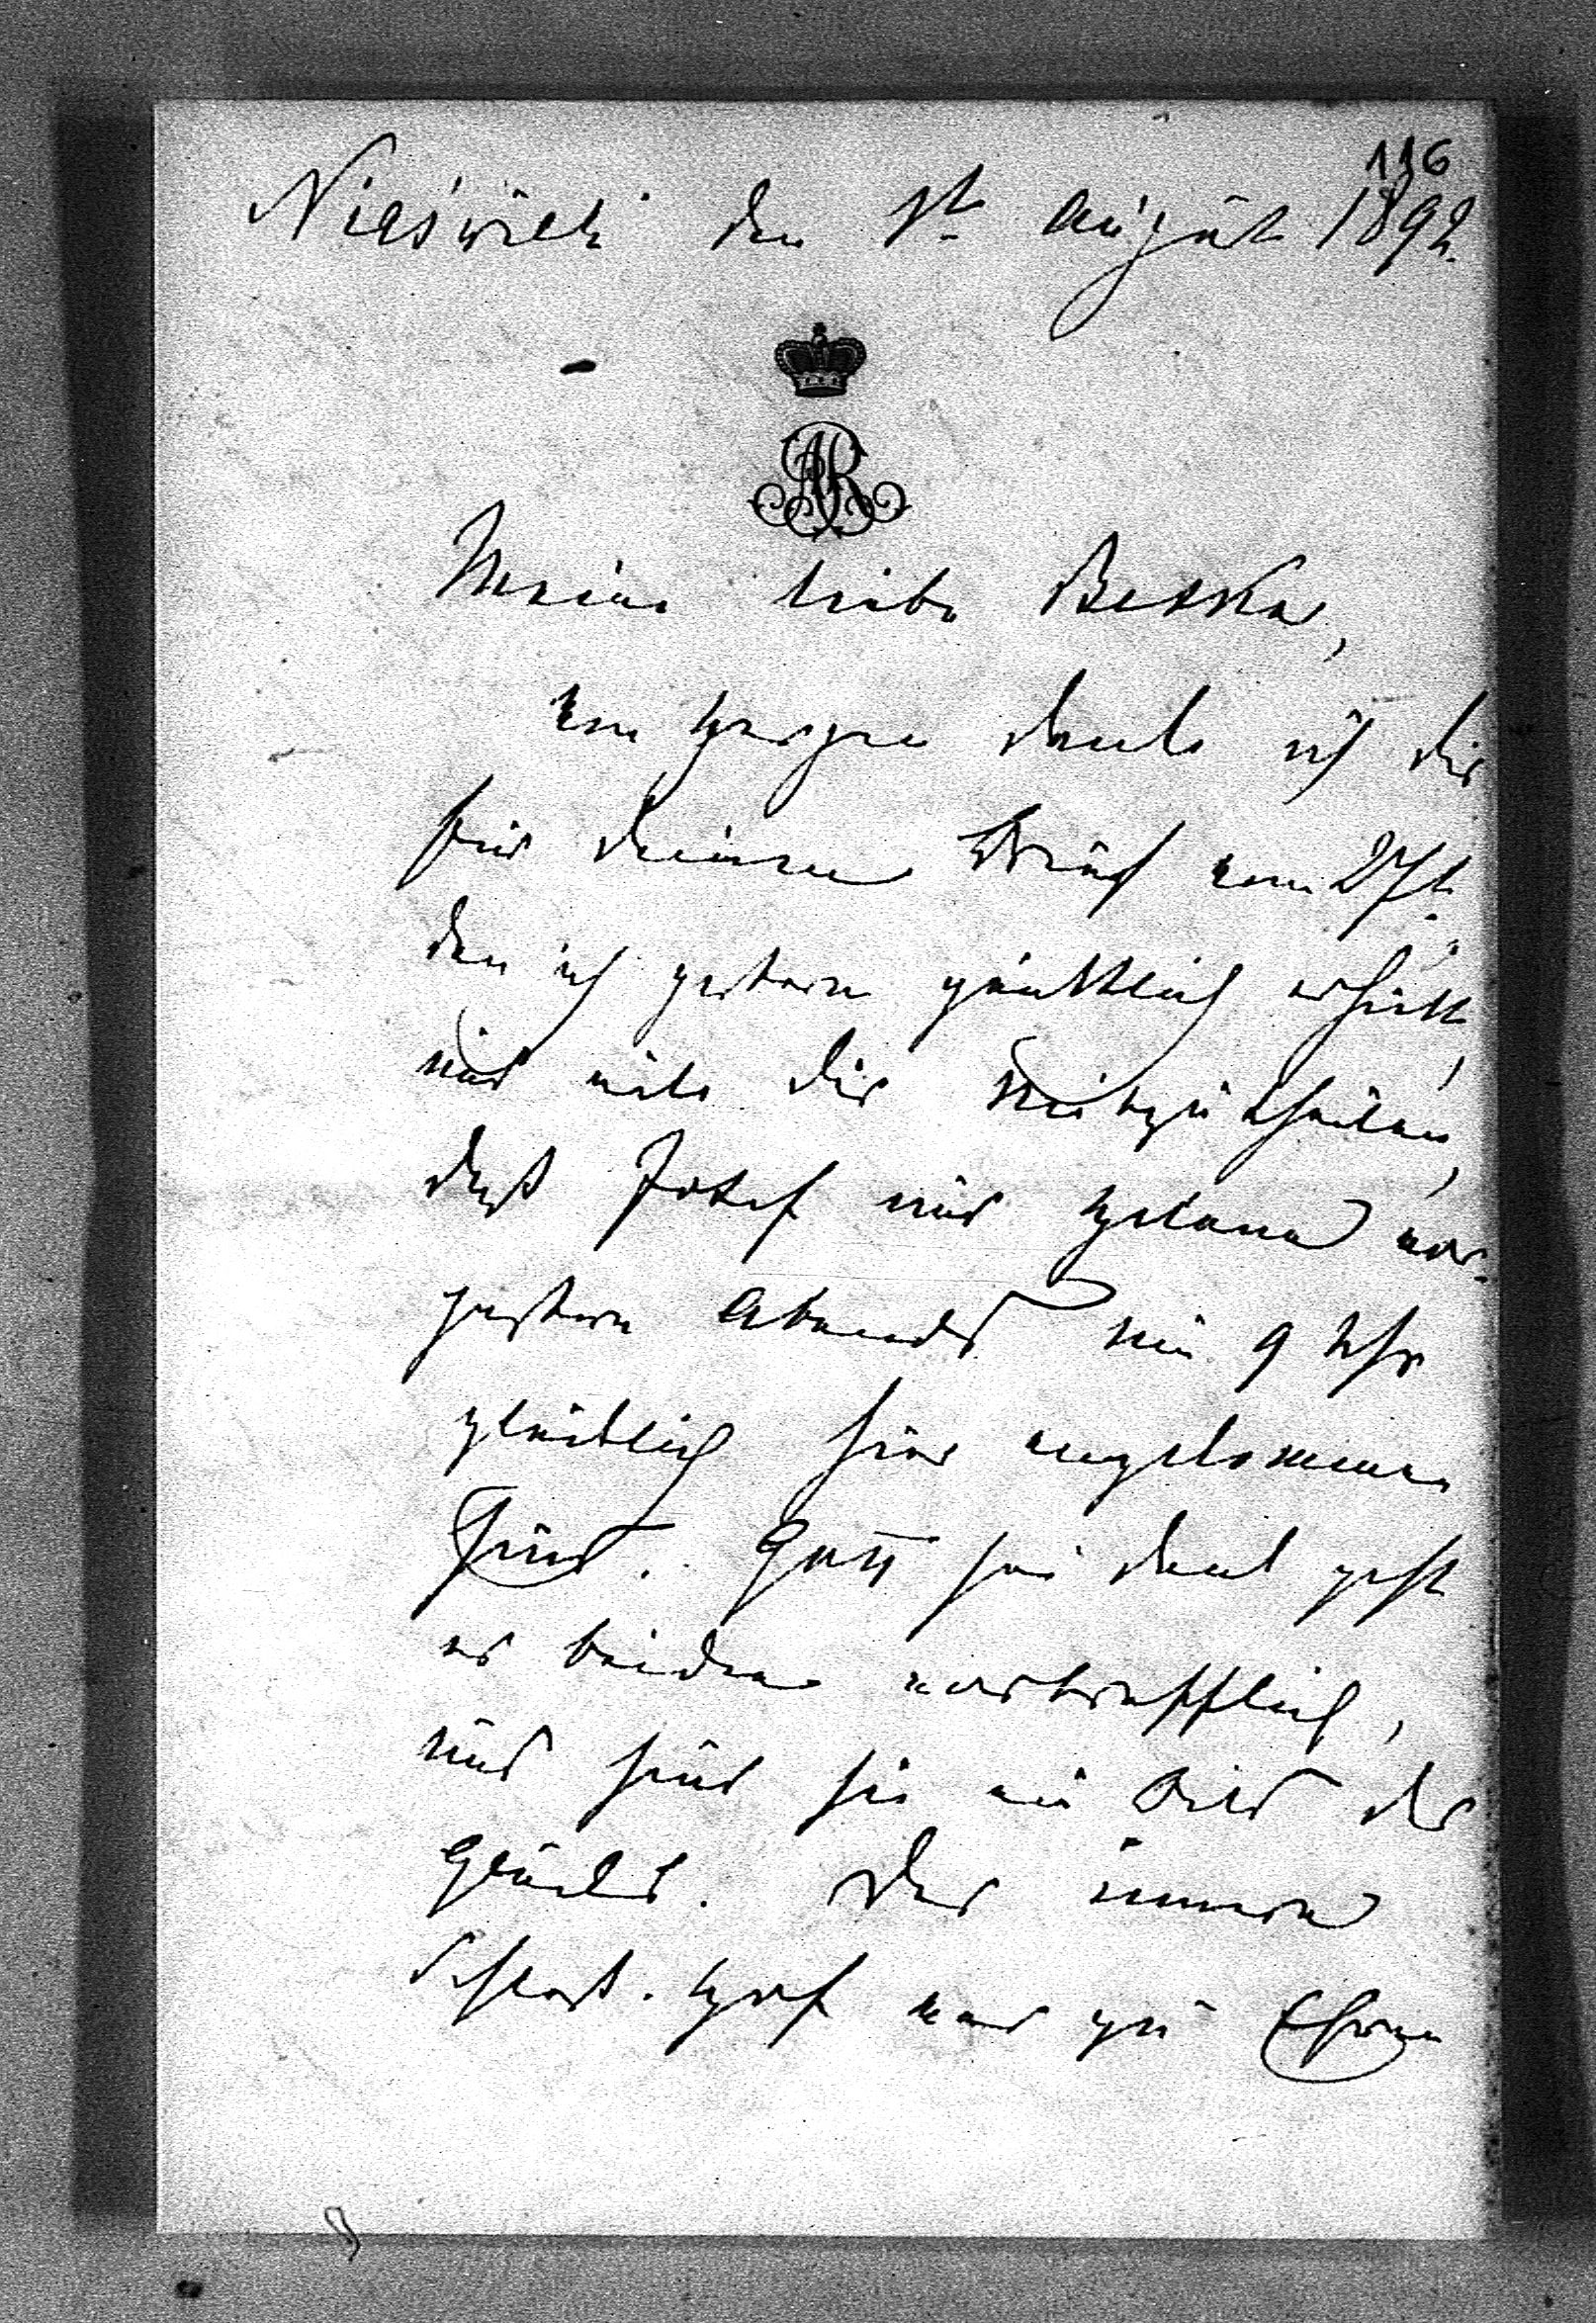 116
Nieświeź den 1t August 1892.
AR
Meine liebe Betka,
von Herzen danke ich dir
für deinen Brief vom 27t.,
den ich gestern pünktlich erhielt,
und eile dir mitzutheilen,
daß Josef und Helene vor-
gestern Abends um 9 Uhr
glücklich hier angekommen
sind. Gott sei dank geht
es beiden vortrefflich,
und sind sie ein Bild des
Glückes. Der innere
Schloß-Hof war zu Ehren